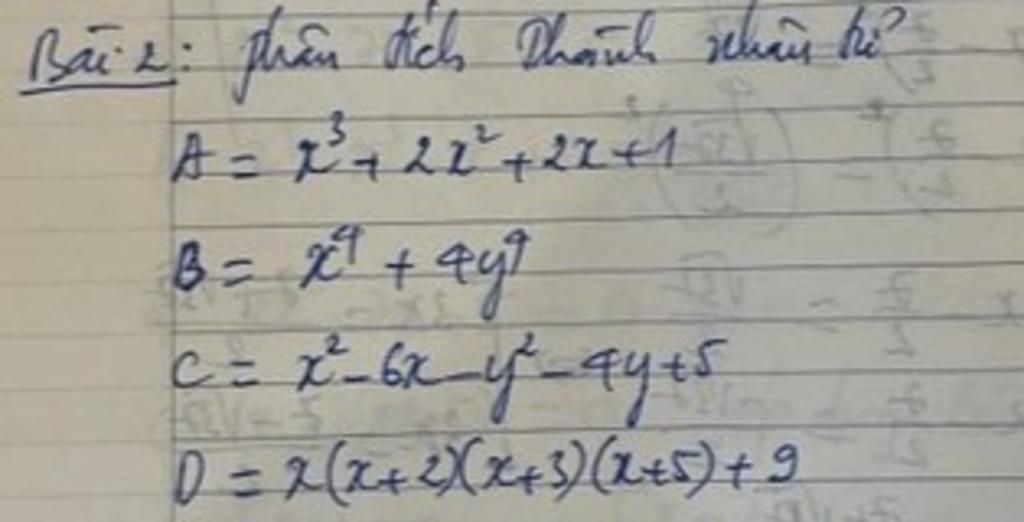 Bài 2: phân tích thành nhân tử
A = x³ + 2x² + 2x + 1
B = x⁴ + 4y⁴
C = x² - 6x - y² - 4y + 5
D = x(x+2)(x+3)(x+5) + 9